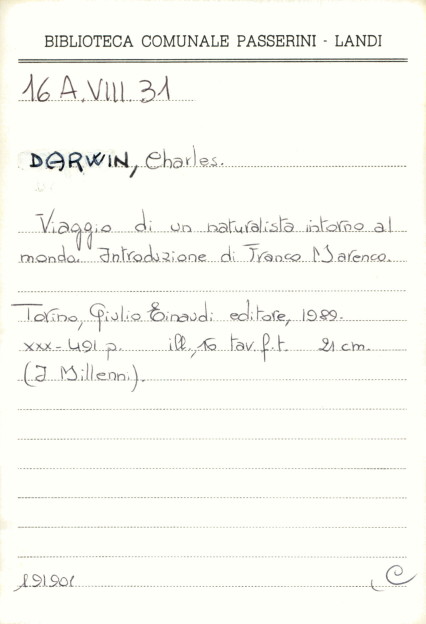 BIBLIOTECA COMUNALE PASSERINI - LANDI
16 A.VIII.31
DARWIN, Charles.
Viaggio di un naturalista intorno al
mondo. Introduzione di Franco Marenco.
Torino, Giulio Einaudi editore, 1989.
xxx-491 p. ill., 16 tav. f.t. 21 cm.
(I Millenni).
191901 C